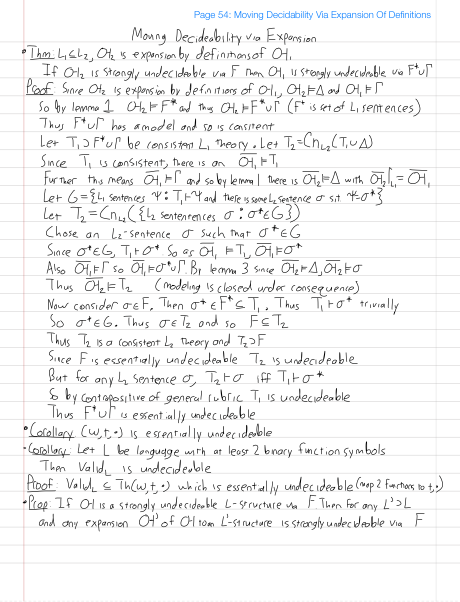 Page 54: Moving Decidability Via Expansion Of Definitions
Moving Decideability via Expansion
• Thm: L₁⊆L₂, OH₂ is expansion by definitions of OH₁
If OH₂ is strongly undecideable via F then OH₁ is strongly undecideable via F*∪Γ
Proof: Since OH₂ is expansion by definitions of OH₁, OH₂⊨Δ and OH₁⊨Γ
So by lemma 1 OH₂⊨F* and thus OH₂⊨F*∪Γ (F* is set of L₁ sentences)
Thus F*∪Γ has a model and so is consitent
Let T₁⊃F*∪Γ be consistent L₁ theory. Let T₂=Cn_L₂(T₁∪Δ)
Since T₁ is consistent, there is an OH₁⊨T₁
Further this means OH₁⊨Γ and so by lemma 1 there is OH₂⊨Δ with OH₂|_L₁=OH₁
Let G={L₁ sentences Ψ: T₁⊢Ψ and there is some L₂ sentence σ s.t Ψ=σ*}
Let T₂=Cn_L₂({L₂ sentences σ: σ*∈G})
Chose an L₂-sentence σ such that σ*∈G
Since σ*∈G, T₁⊢σ*. So as OH₁⊨T₁, OH₁⊨σ*
Also OH₁⊨Γ so OH₁⊨σ*∪Γ. By lemma 3 since OH₂⊨Δ, OH₂⊨σ
Thus OH₂⊨T₂ (modeling is closed under consequence)
Now consider σ∈F. Then σ*∈F*⊆T₁. Thus T₁⊢σ* trivially
So σ*∈G. Thus σ∈T₂ and so F⊆T₂
Thus T₂ is a consistent L₂ theory and T₂⊃F
Since F is essentially undecideable T₂ is undecideable
But for any L₂ sentence σ, T₂⊢σ iff T₁⊢σ*
So by contrapositive of general rubric T₁ is undecideable
Thus F*∪Γ is essentially undecideable
• Corollary (ω,t,•) is essentially undecideable
• Corollary: Let L be language with at least 2 binary function symbols
Then Valid_L is undecideable
Proof: Valid_L ⊆ Th(ω,t,•) which is essentially undecideable (map 2 functions to t,•)
• Prop: If OH is a strongly undecideable L-structure via F. Then for any L'⊃L
and any expansion OH' of OH to an L'-structure is strongly undecideable via F